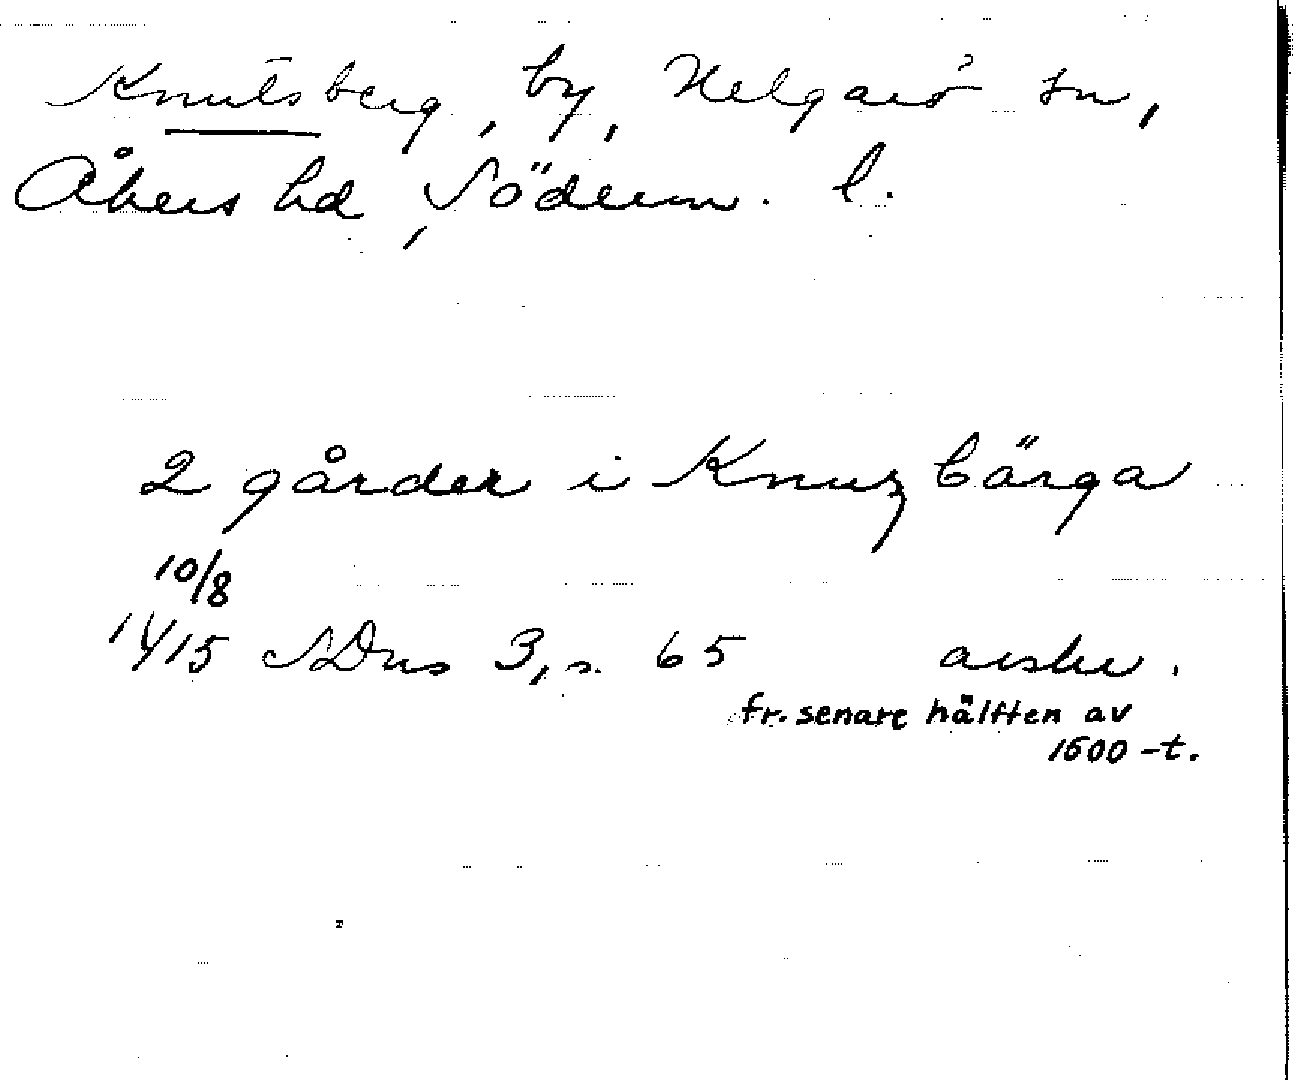 Knutsberg, by, Helgarö sn,
Åkers hd, Söderm. l.
2 gårder i Knuzbärga
10/8
1415 SDns 3, s. 65 avskr.
fr. senare hälften av
1600-t.